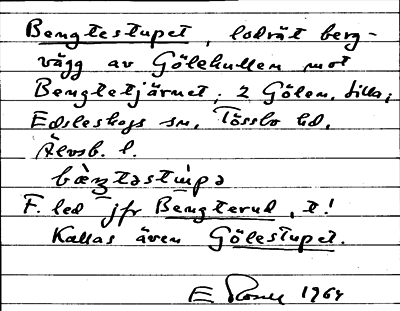 Bengtestupet, lodrät berg-
vägg av Gölekullen mot
Bengtetjärnet, 2 Gölen, Lilla,
Edsleskogs sn, Tössbo hd,
Älvsb. l.
F. led jfr Bengterud, t!
Kallas även Gölestupet.
E 1964